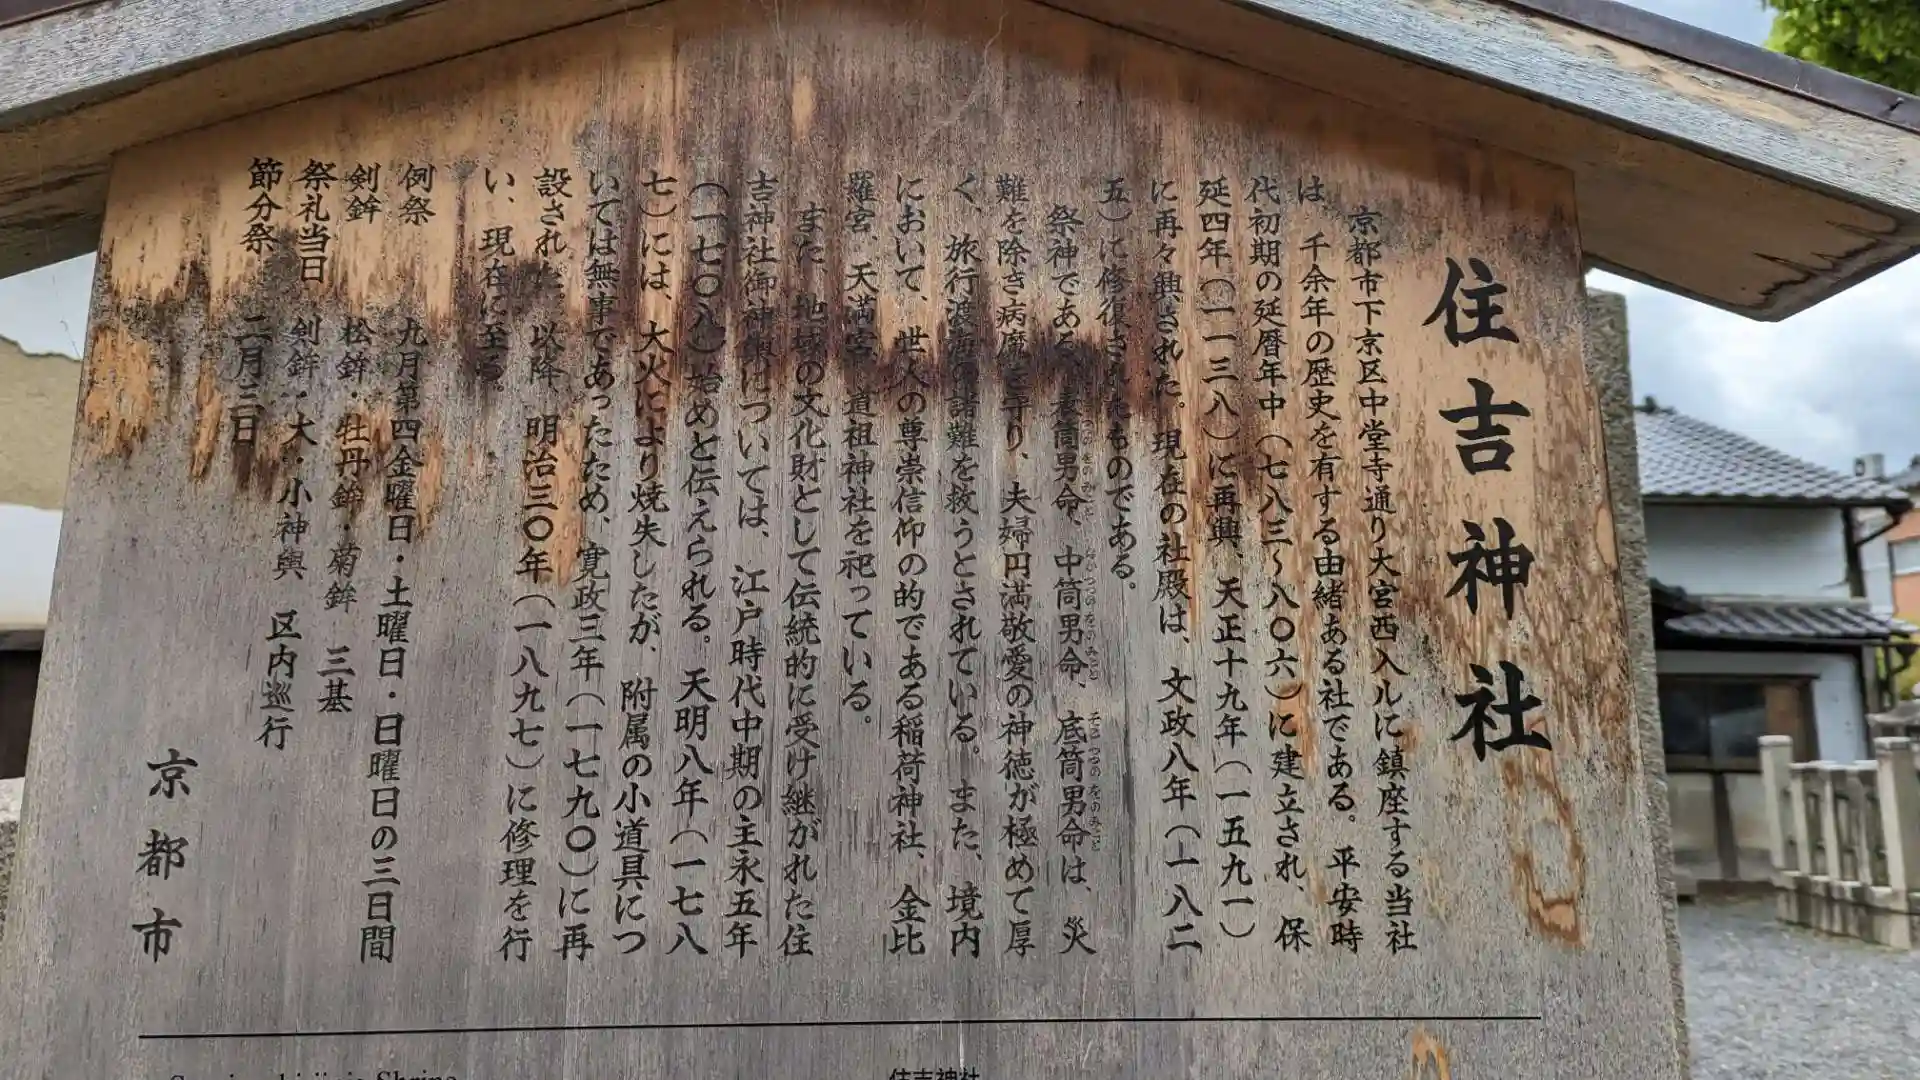 住吉神社
京都市下京区中堂寺通り大宮西入ルに鎮座する当社
は、千余年の歴史を有する由緒ある社である。平安時
代初期の延暦年中(七八三~八〇六)に建立され、保
延四年(一一三八)に再興、天正十九年(一五九一)
に再々興された。現在の社殿は、文政八年(一八二
五)に修復されたものである。
祭神である表筒男命、中筒男命、底筒男命は、災
難を除き病魔を守り、夫婦円満敬愛の神徳が極めて厚
く、旅行渡海の諸難を救うとされている。また、境内
において、世人の尊崇信仰の的である稲荷神社、金比
羅宮、天満宮、道祖神社を祀っている。
また、地域の文化財として伝統的に受け継がれた住
吉神社御神輿については、江戸時代中期の主永五年
(一七〇八)始めと伝えられる。天明八年(一七八
七)には、大火により焼失したが、附属の小道具につ
いては無事であったため、寛政三年(一七九〇)に再
設された。以降、明治三〇年(一八九七)に修理を行
い、現在に至る。
例祭 九月第四金曜日・土曜日・日曜日の三日間
剣鉾 松鉾・牡丹鉾・菊鉾 三基
祭礼当日 剣鉾・大・小神輿 区内巡行
節分祭 二月三日
京都市